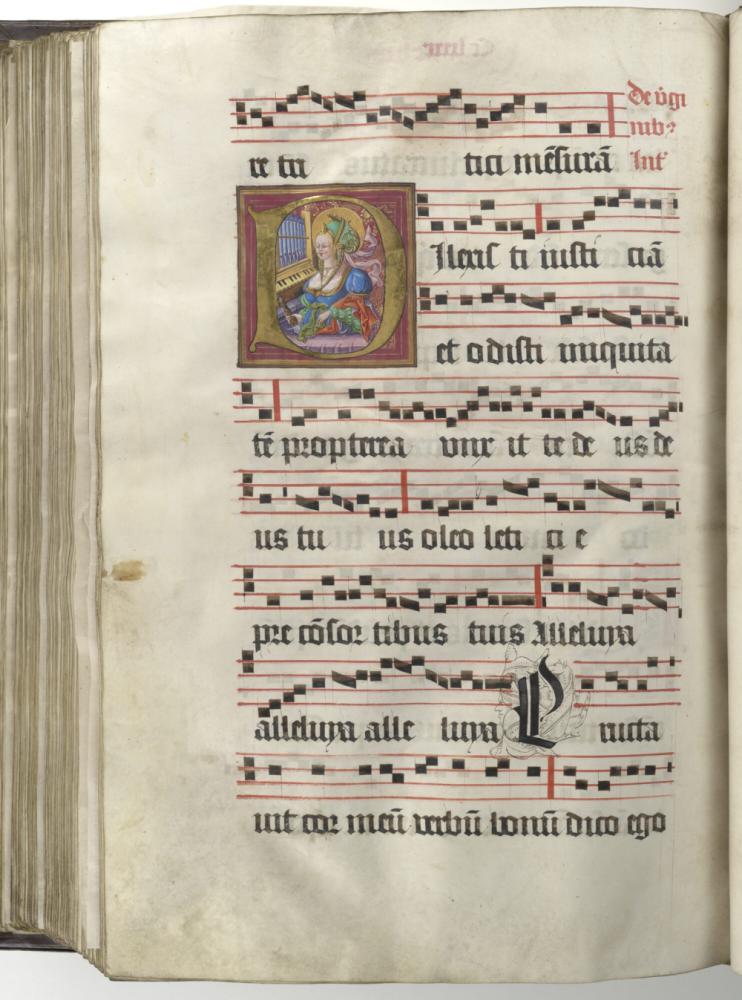 De v̄gi
re tri tici mēsurā
nib⁹
Int̄
Dilexis ti iusti ciā
et odisti iniquita
tē propterea vnx it te de us de
us tu us oleo leti ci e
pre cōsor tibus tuis Alleluya
alleluya alle luya Eructa
uit cor meū verbū bonū dico ego